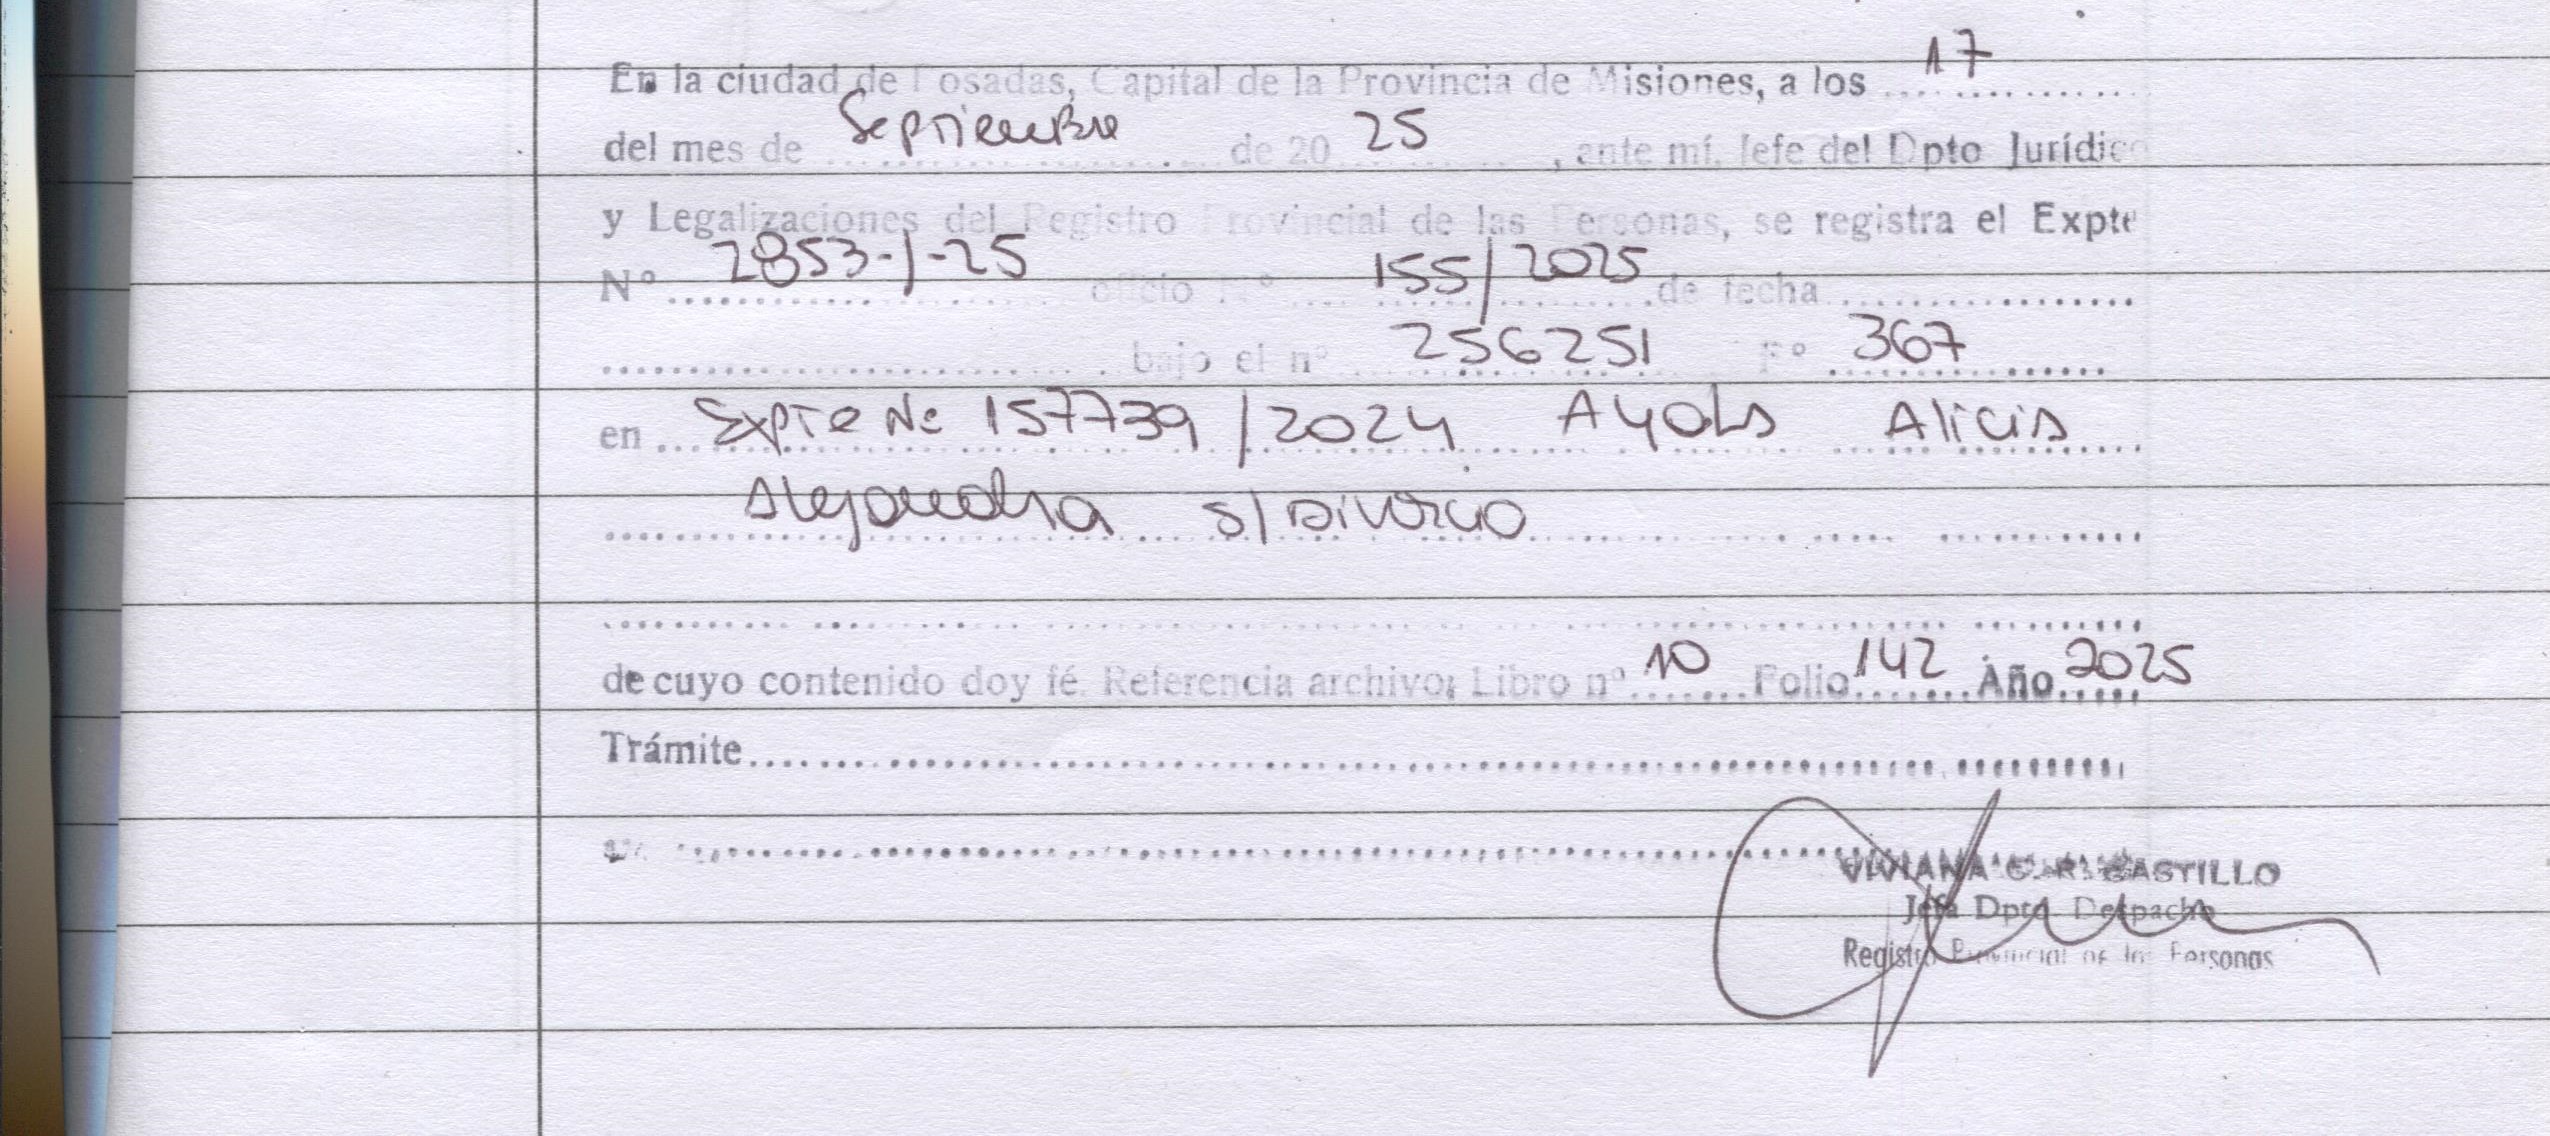 En la ciudad de Posadas, Capital de la Provincia de Misiones, a los 17
del mes de Septiembre de 20 25, ante mí, Jefe del Dpto Jurídico
y Legalizaciones del Registro Provincial de las Personas, se registra el Expte
Nº 2853-/-25 oficio Nº 155/2025 de fecha
bajo el nº 256251 Fº 367
en Expte Nº 157739/2024 Ayala Alicia
Alejandra s/Divorcio
de cuyo contenido doy fé. Referencia archivo; Libro nº 10 Folio 142 Año 2025
Trámite
VIVIANA C. R. CASTILLO
Jefa Dpto Despacho
Registro Provincial de las Personas